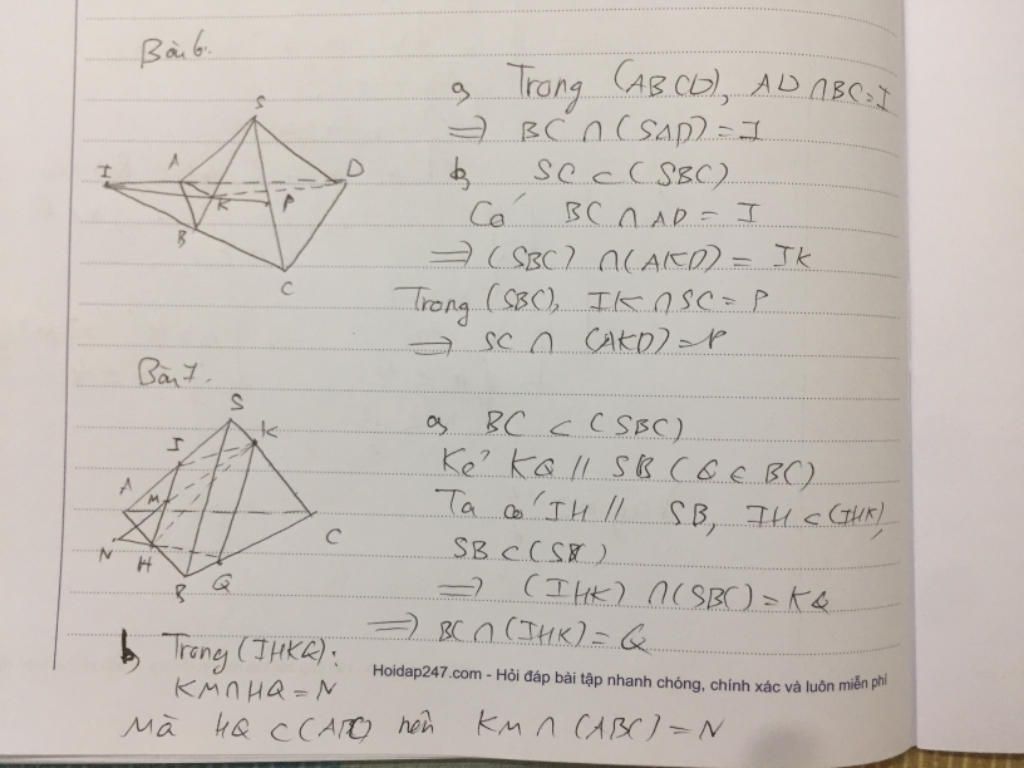 Bài 6.
a, Trong (ABCD), AD ∩ BC = I
=> BC ∩ (SAD) = I
b, SC ⊂ (SBC)
Có BC ∩ AD = I
=> (SBC) ∩ (AKD) = IK
Trong (SBC), IK ∩ SC = P
=> SC ∩ (AKD) = P
S
I
A
D
K
P
B
C
Bài 7.
a, BC ⊂ (SBC)
Kẻ KQ // SB (Q ∈ BC)
Ta có IH // SB, IH ⊂ (IHK),
SB ⊂ (SBC)
=> (IHK) ∩ (SBC) = KQ
=> BC ∩ (IHK) = Q
S
K
I
A
M
N
H
B
Q
C
b, Trong (IHKQ):
KM ∩ HQ = N
Mà HQ ⊂ (ABC) nên KM ∩ (ABC) = N
Hoidap247.com - Hỏi đáp bài tập nhanh chóng, chính xác và luôn miễn phí